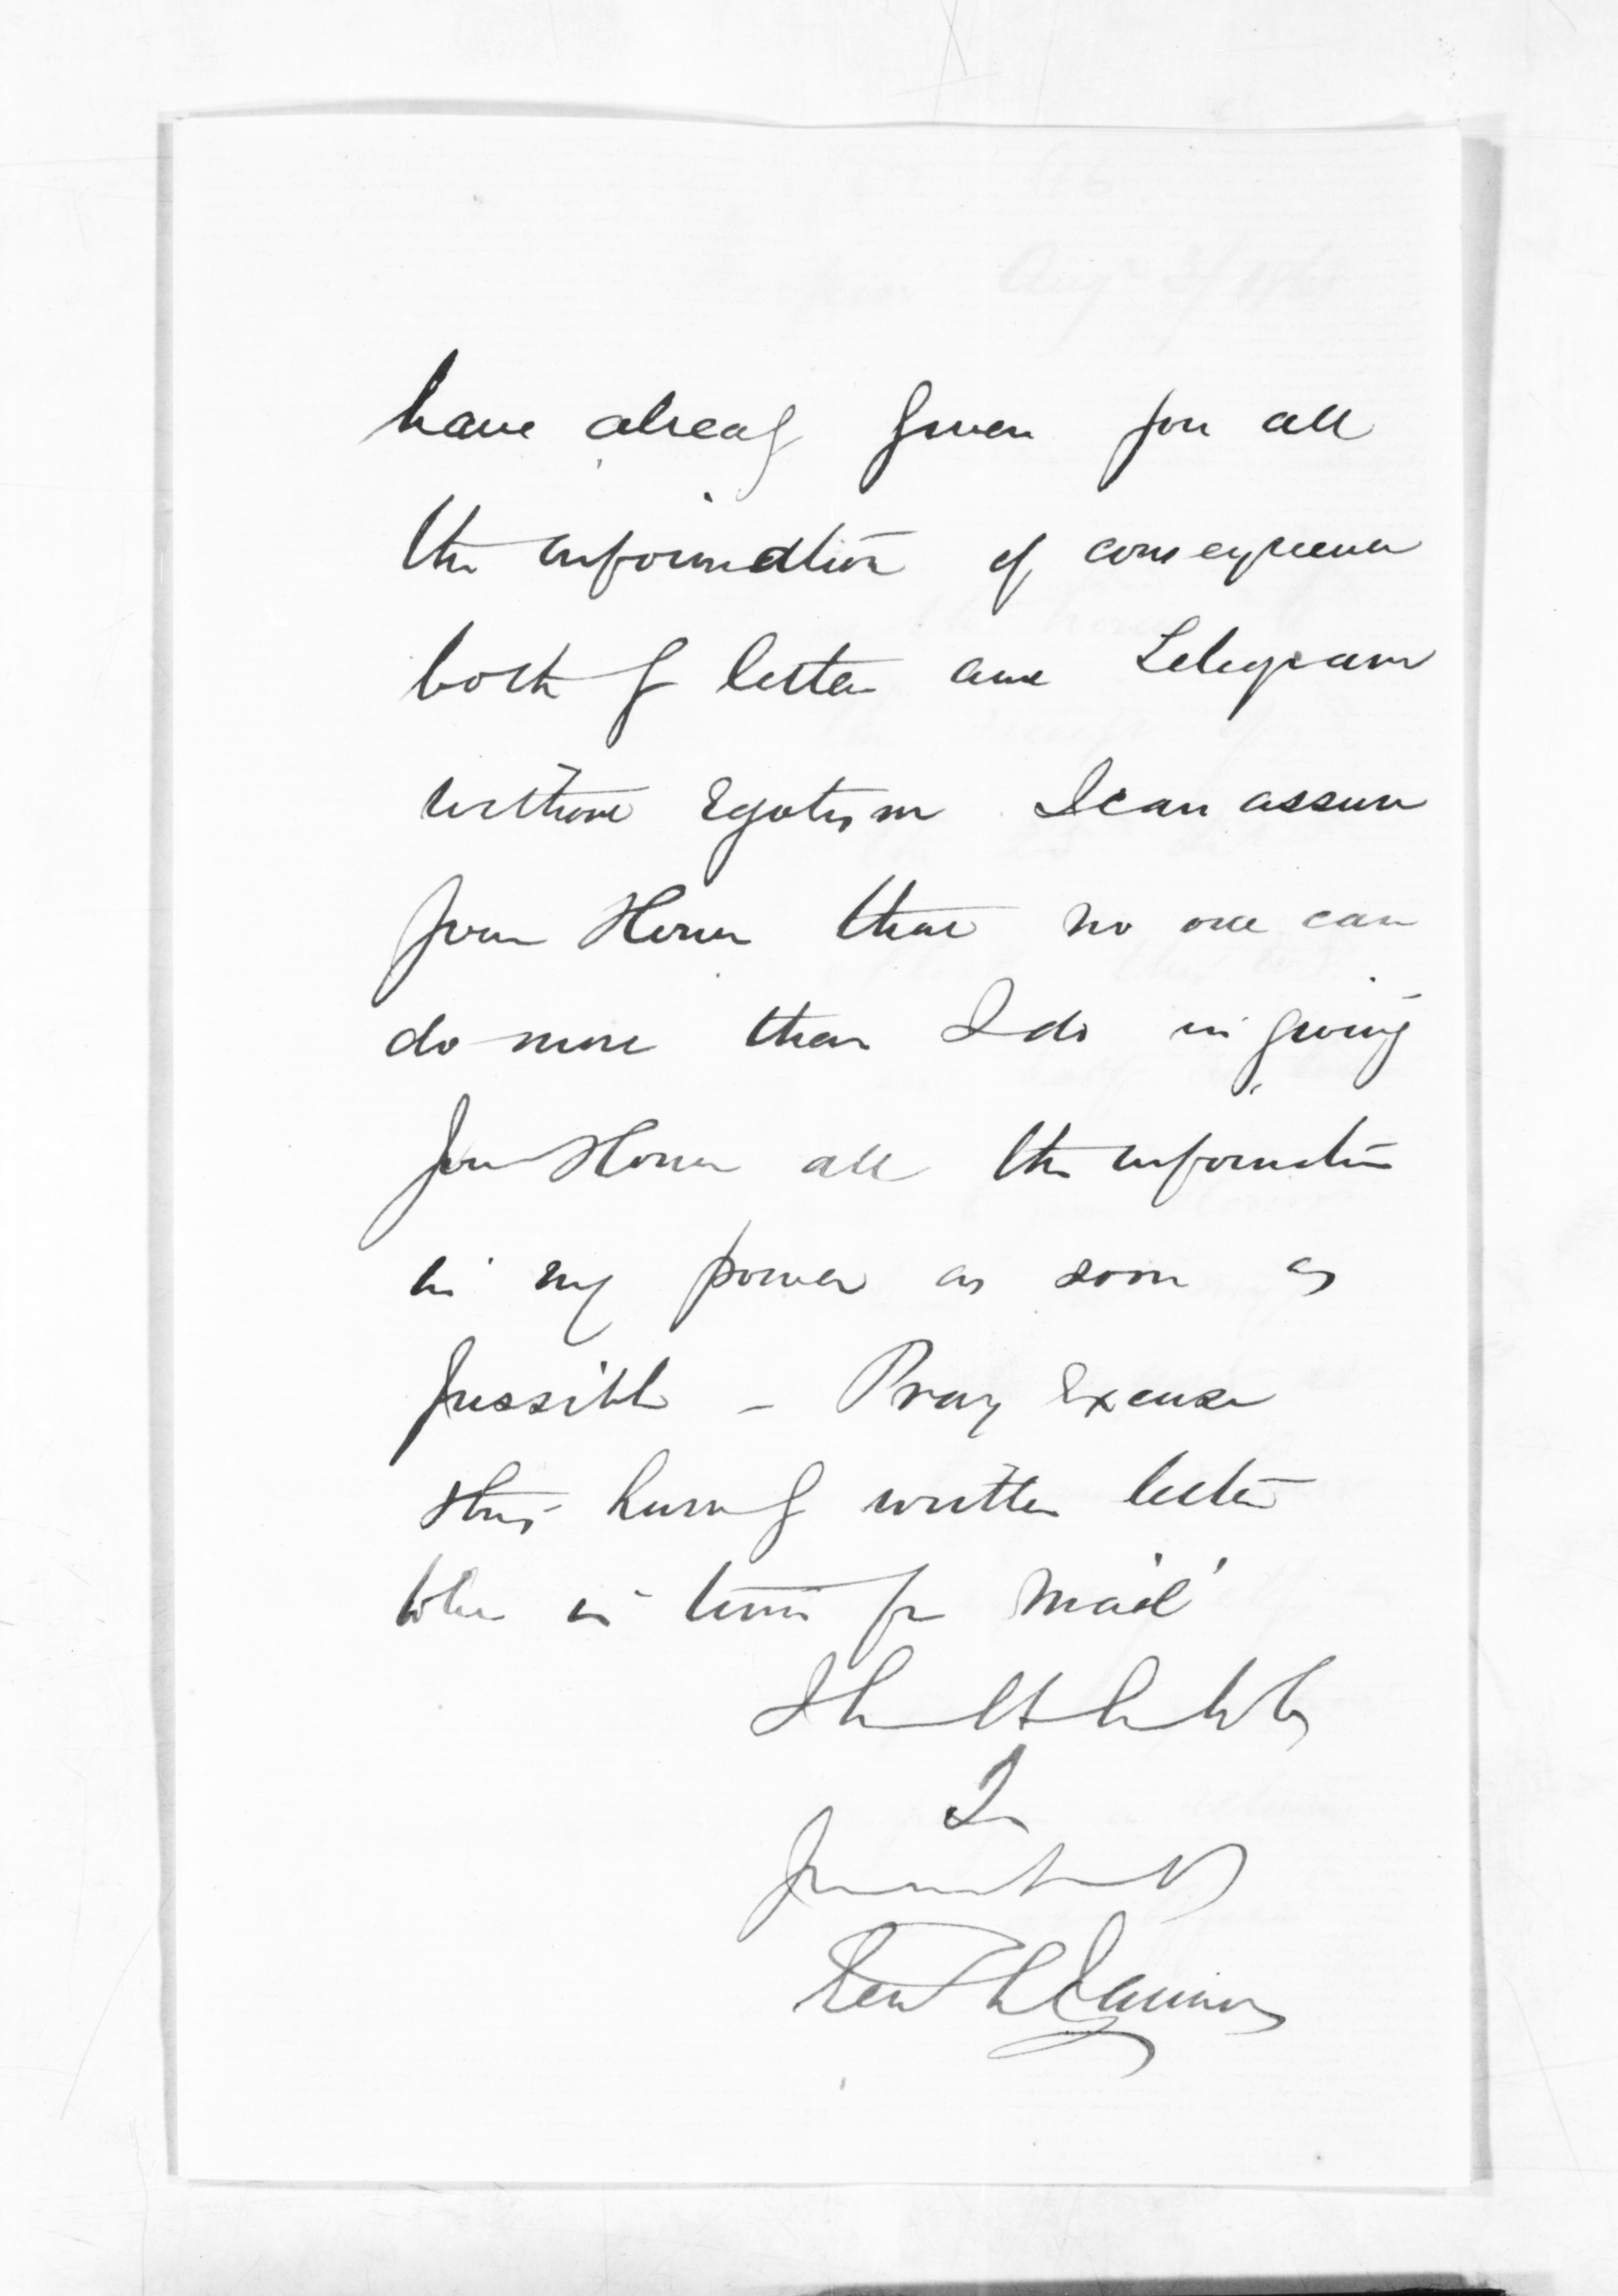 have already given you all
the information of consequence
both by letter and Telegram
without Egotism I can assure
your Honor that no one can
do more than I do in giving
your Honor all the information
in my power as soon as
possible - Pray Excuse
this hurry written letter
to be in time for Mail
I